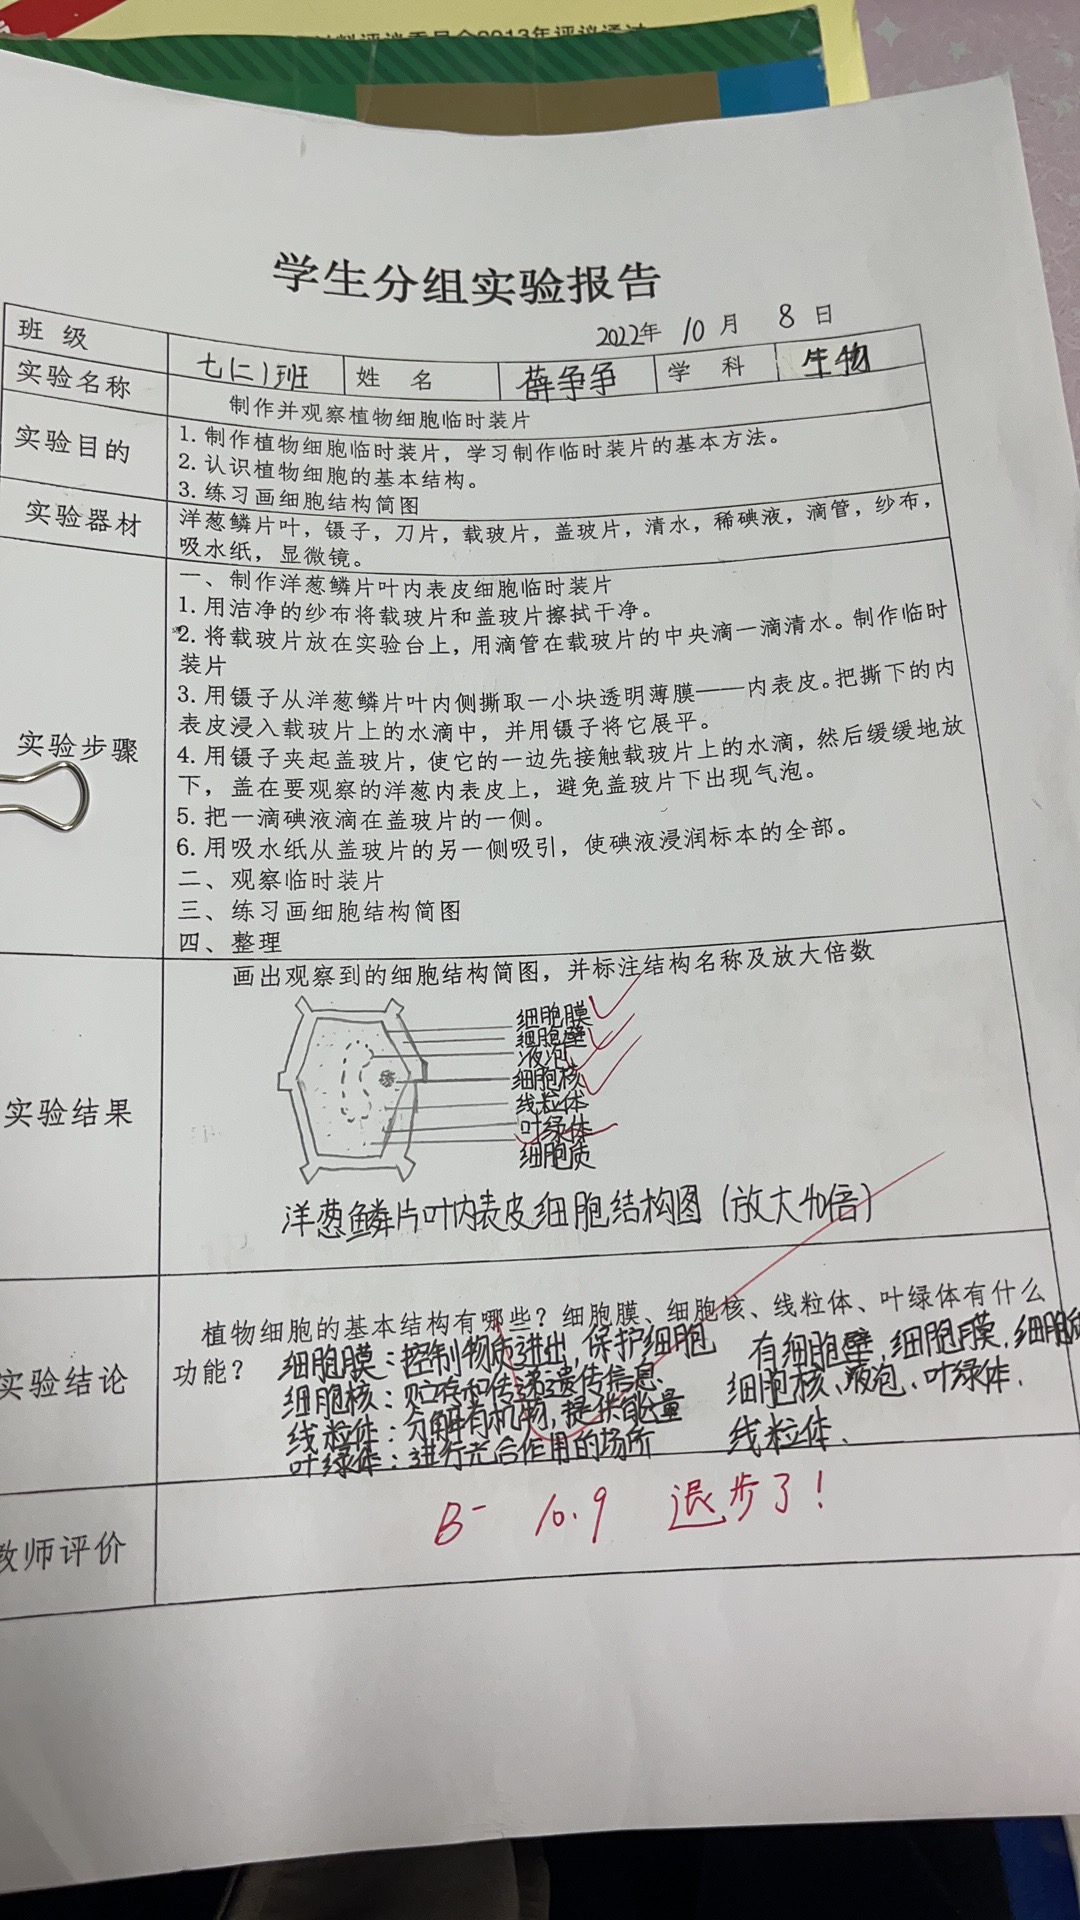 2013年评议通过
学生分组实验报告
2022年 10月 8日
班 级 七(二)班 姓 名 薛争争 学 科 生物
实验名称 制作并观察植物细胞临时装片
实验目的
1. 制作植物细胞临时装片，学习制作临时装片的基本方法。
2. 认识植物细胞的基本结构。
3. 练习画细胞结构简图
实验器材
洋葱鳞片叶，镊子，刀片，载玻片，盖玻片，清水，稀碘液，滴管，纱布，
吸水纸，显微镜。
实验步骤
一、制作洋葱鳞片叶内表皮细胞临时装片
1. 用洁净的纱布将载玻片和盖玻片擦拭干净。
2. 将载玻片放在实验台上，用滴管在载玻片的中央滴一滴清水。制作临时
装片
3. 用镊子从洋葱鳞片叶内侧撕取一小块透明薄膜——内表皮。把撕下的内
表皮浸入载玻片上的水滴中，并用镊子将它展平。
4. 用镊子夹起盖玻片，使它的一边先接触载玻片上的水滴，然后缓缓地放
下，盖在要观察的洋葱内表皮上，避免盖玻片下出现气泡。
5. 把一滴碘液滴在盖玻片的一侧。
6. 用吸水纸从盖玻片的另一侧吸引，使碘液浸润标本的全部。
二、观察临时装片
三、练习画细胞结构简图
四、整理
实验结果
画出观察到的细胞结构简图，并标注结构名称及放大倍数
细胞膜
细胞壁
液泡
细胞核
线粒体
叶绿体
细胞质
洋葱鳞片叶内表皮细胞结构图（放大40倍）
实验结论
植物细胞的基本结构有哪些？细胞膜、细胞核、线粒体、叶绿体有什么
功能？
细胞膜：控制物质进出，保护细胞
细胞核：贮存和传递遗传信息.
线粒体：分解有机物，提供能量
叶绿体：进行光合作用的场所
有细胞壁、细胞膜、细胞质
细胞核、液泡、叶绿体.
线粒体.
教师评价
B⁻ 10.9 退步了！